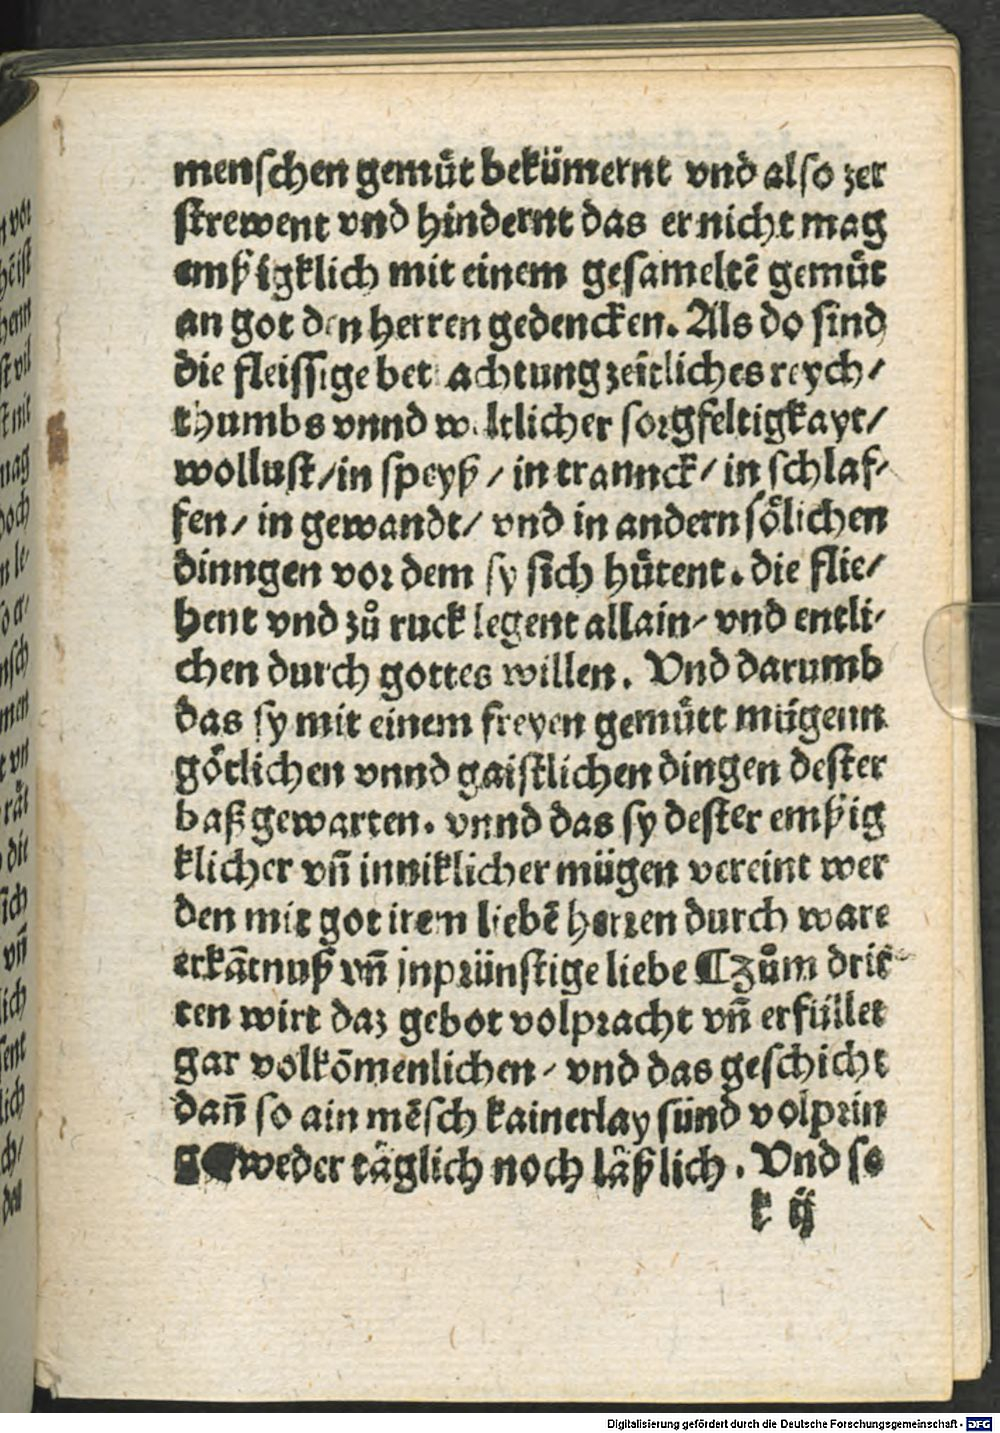 menschen gemuͤt bekümernt vnd also zer
strewent vnd hindernt das er nicht mag
emßigklich mit einem gesameltē gemuͤt
an got den herren gedencken. Als do sind
die fleissige betrachtung zeitliches reych/
thumbs vnnd weltlicher sorgfeltigkayt/
wollust/in speyß/ in tranck/ in schlaf/
fen/ in gewandt/ vnd in andern soͤlichen
dinngen vor dem sy sich huͤtent. die flie/
hent vnd zuͦ ruck legent allain/ vnd entli/
chen durch gottes willen. Vnd darumb
das sy mit einem freyen gemuͤtt mügenn
goͤtlichen vnnd gaistlichen dingen dester
baß gewarten. vnnd das sy dester emßig
klicher vñ inniklicher mügen vereint wer
den mit got irem liebē herren durch ware
erkātnuß vñ jnprünstige liebe ¶ Zuͦm drit
ten wirt daz gebot volpracht vñ erfüllet
gar volkōmenlichen/ vnd das geschicht
dañ so ain mēsch kainerlay sünd volprin
weder täglich noch läßlich. Vnd so
k ij
Digitalisierung gefördert durch die Deutsche Forschungsgemeinschaft - DFG